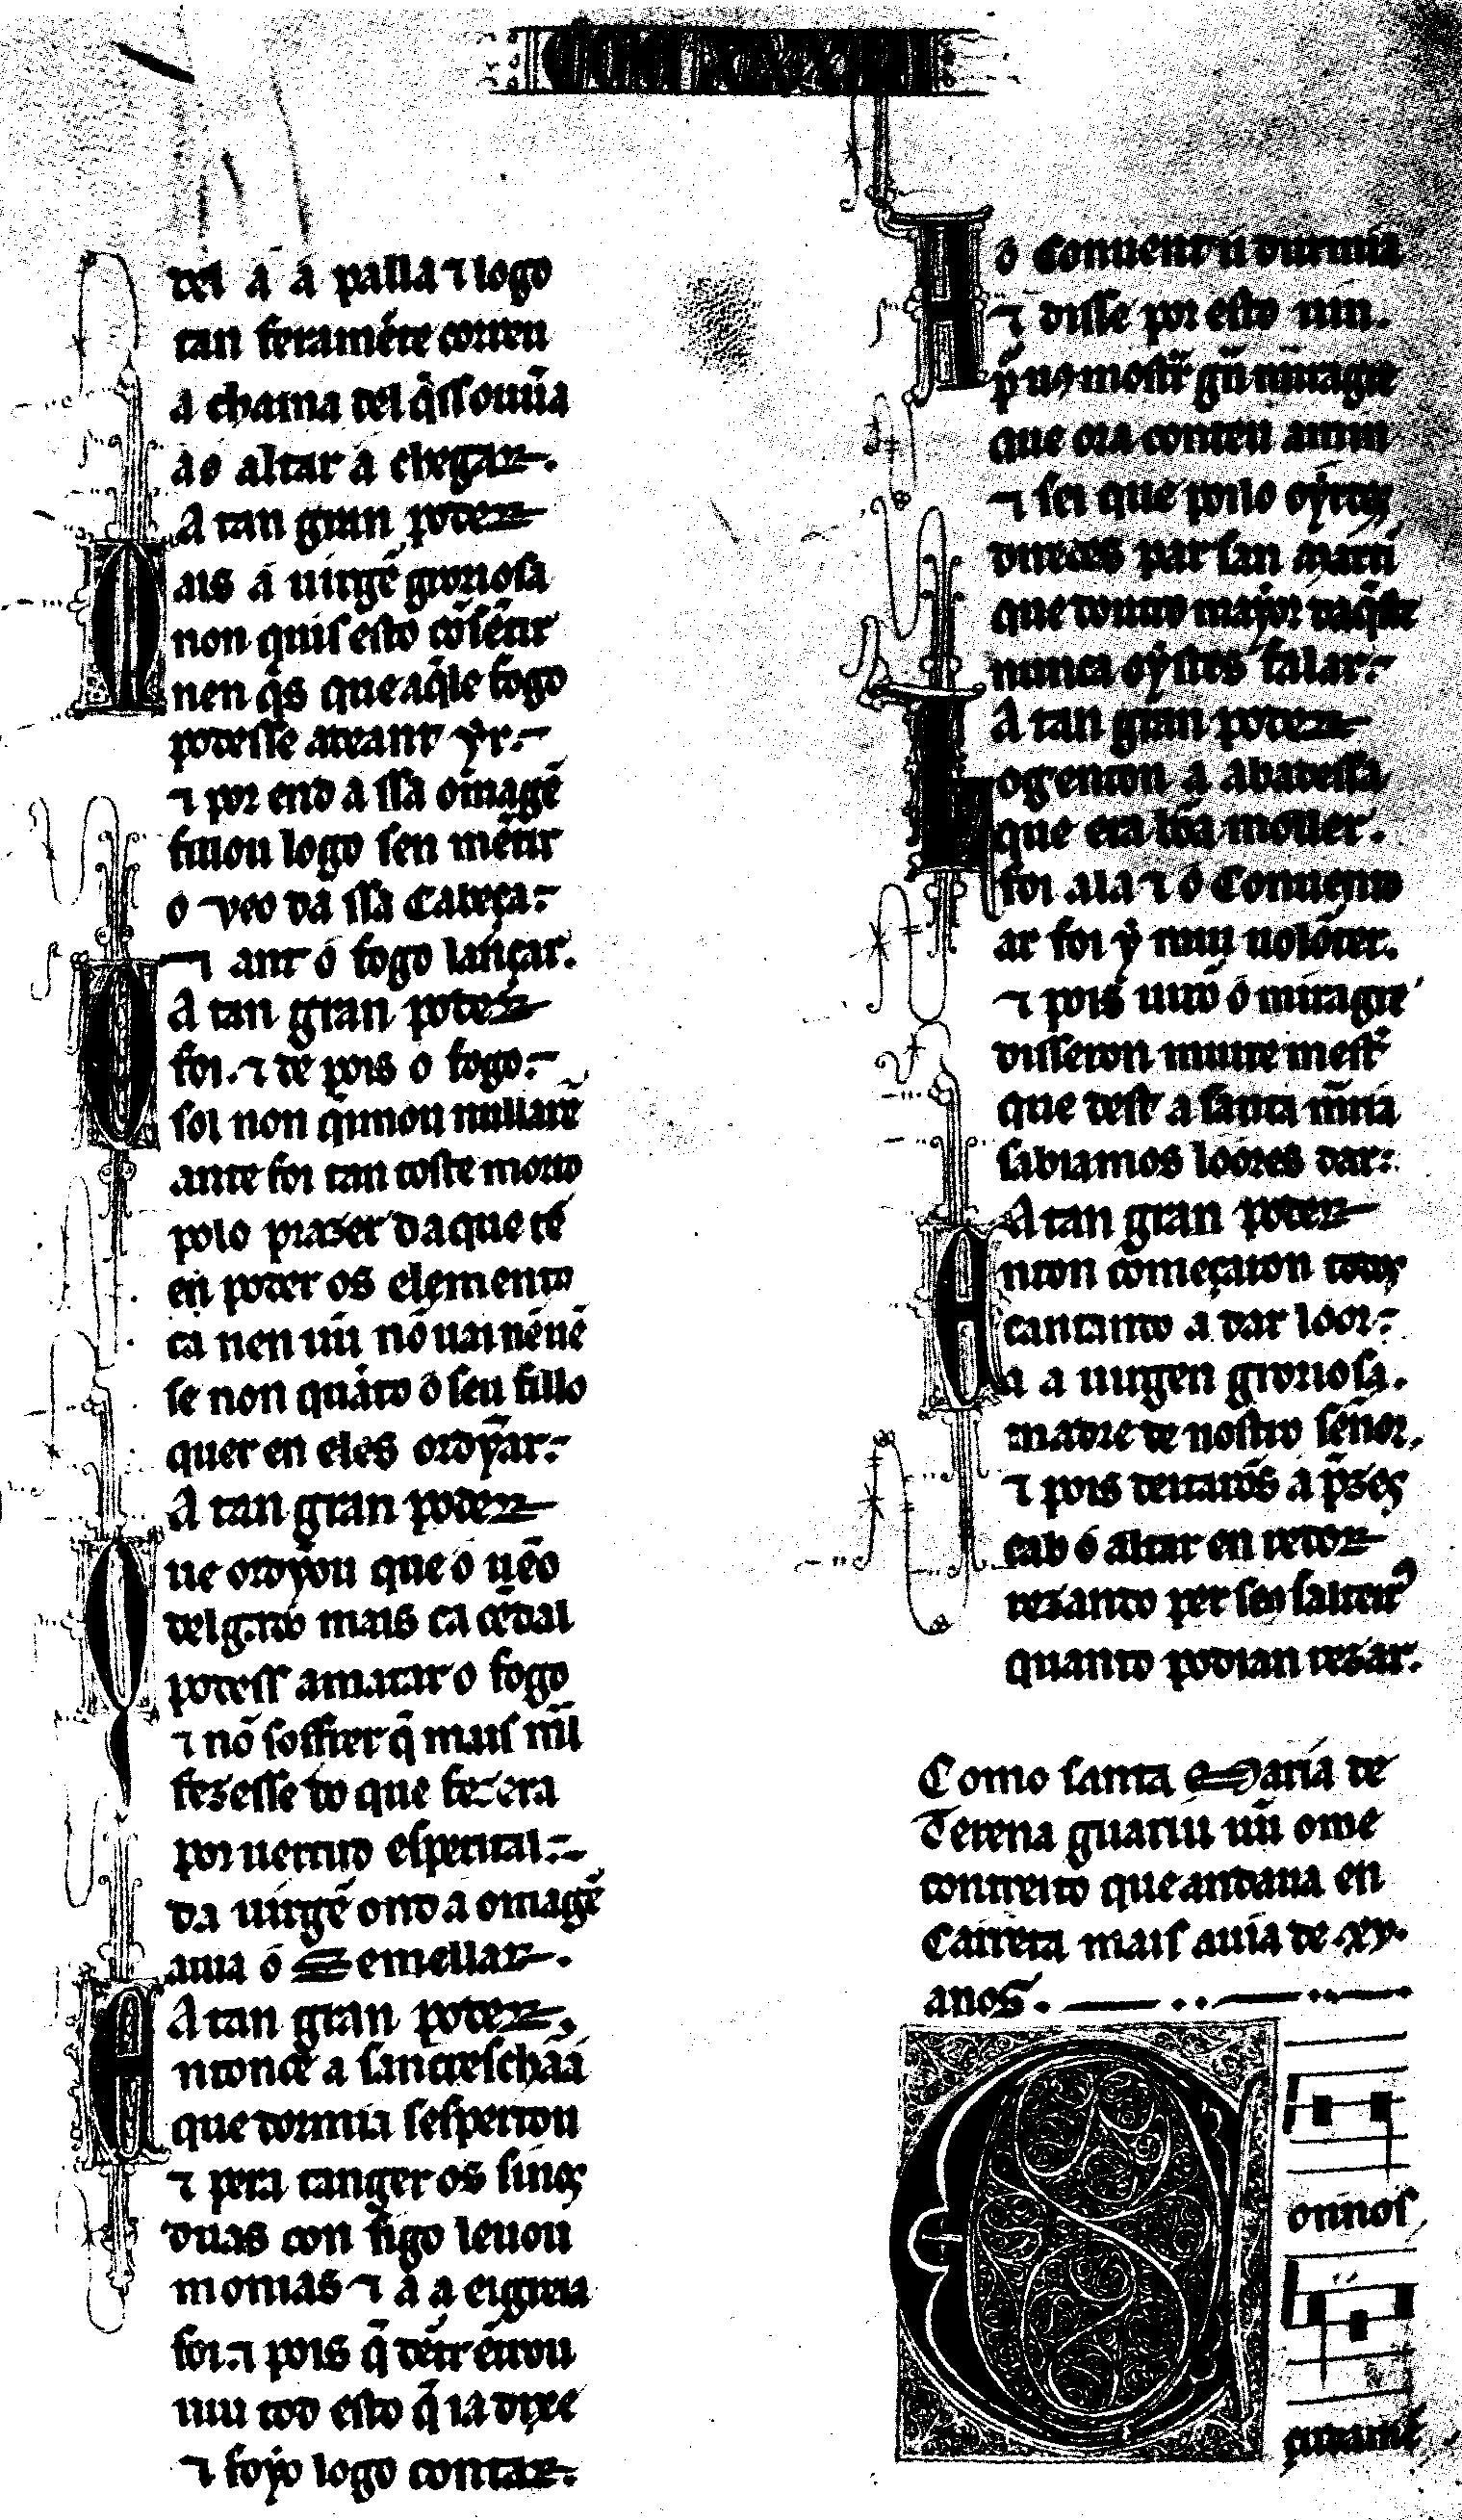 del a á palla ⁊ logo
tan feramẽte correu
a chama del q̃ ſſouuã
ao altar a chegar.
A tan gran poder
Mais a uirgẽ grorioſa
non quiſ eſto cõſẽtir
nen q̃s que aq̃le fogo
podeſſe ateant yr.
⁊ por end a ſſa omagẽ
fillou logo ſen mẽtir
o veo da ſſa Cabeça.
⁊ ant ó fogo lançar.
A tan gran poder
Foi. ⁊ de pois o fogo.
ſol non q̃imou nullarẽ
ante foi tan toſte morto
polo prazer da que tẽ
en poder os elementos
ca nen uũ nõ uai nẽ uẽ
ſe non quãto o ſeu fillo
quer en eles ordỹar.
A tan gran poder
Que ordỹou que o uẽo
delgado mais ca cẽdal
podeſſ amatar o fogo
⁊ nõ ſoffrer q̃ mais mal
fezeſſe do que fezera
por uertud eſperital.
da uirgẽ ond a omagẽ
auia ó Semellar.
A tan gran poder
Entonce a ſancreſchãa
que dormia ſeſpertou
⁊ pera tanger os ſinos
duas con ſigo leuou
monias ⁊ a a eigreia
foi. ⁊ pois q̃ dẽtr ẽtrou
uiu tod eſto q̃ ia dixe
⁊ foyo logo contar.
A o Conuent u durmia
⁊ diſſe por eſto uin.
p̃ uos moſtrar gñ miragre
que ora conteu aiuin
⁊ ſei que poilo oyrdes
diredes par ſan Martí
que doutro mayor daq̃ſte
nunca oyſtes falar.
A tan gran poder
Log enton a abadeſſa
que era bõa moller.
foi ala ⁊ o Conuento
ar foi y mui uolõter.
⁊ pois uirõ o miragre
diſſeron muit e meſt̃
que deſt a ſanta maria
ſabiamos loores dar.
A tan gran poder
Enton começaron todas
cantando a dar loor.
a a uirgen grorioſa.
madre de noſtro ſẽnor.
⁊ pois deitarõs a p̃zes
cab o altar en redor
rezando per ſeus ſalteir̃
quanto podian rezar.
Como ſanta Maria de
Terena guariu uũ ome
contreito que andaua en
Carreta mais auia de .xv.
anos.
Connoſ
çudamẽ